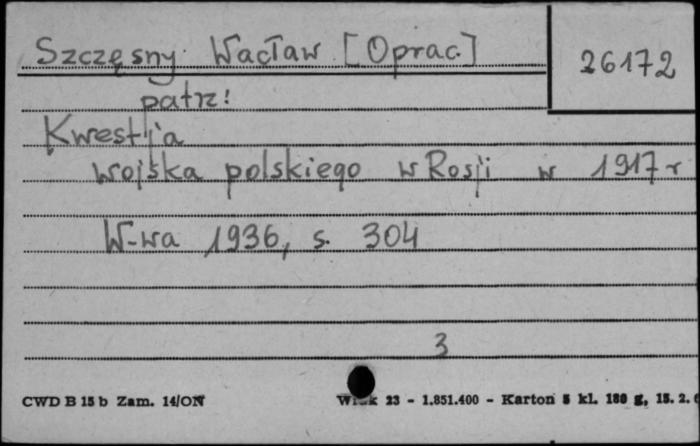 Szczęsny Wacław [Oprac.]
26172
patrz:
Kwestja
wojska polskiego w Rosji w 1917 r
W-wa 1936, s. 304
3
CWD B 15 b Zam. 14/ON
23 - 1.851.400 - Karton 5 kl. 180 g, 15. 2.